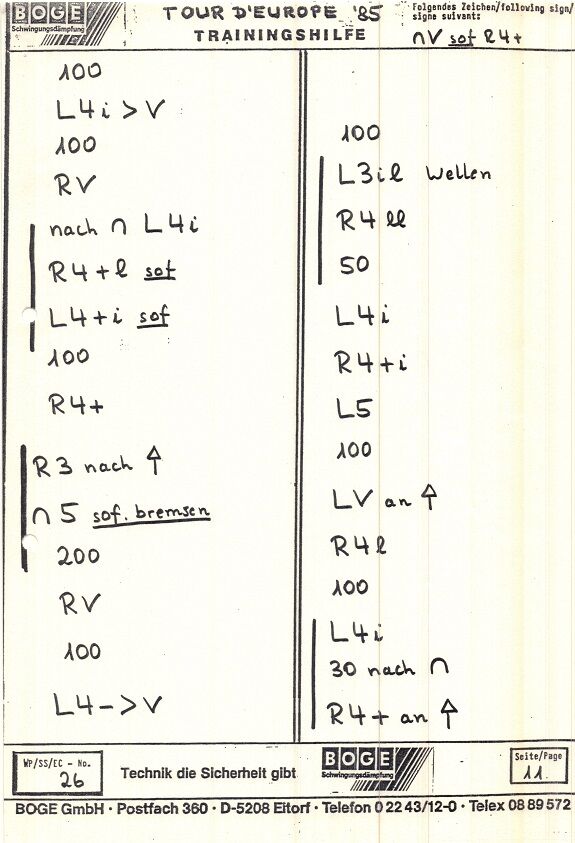 BOGE
Schwingungsdämpfung
TOUR D'EUROPE '85
TRAININGSHILFE
Folgendes Zeichen/following sign/
signe suivant:
∩V sof R4+
100
L4i > V
100
RV
nach ∩ L4i
R4+l sof
L4+i sof
100
R4+
R3 nach ↑
∩ 5 sof. bremsen
200
RV
100
L4-> V
100
L3il Wellen
R4 ll
50
L4i
R4+i
L5
100
LV an ↑
R4l
100
L4i
30 nach ∩
R4+ an ↑
WP/SS/EC - No.
26
Technik die Sicherheit gibt
BOGE
Schwingungsdämpfung
Seite/Page
11
BOGE GmbH · Postfach 360 · D-5208 Eitorf · Telefon 0 22 43/12-0 · Telex 08 89 572